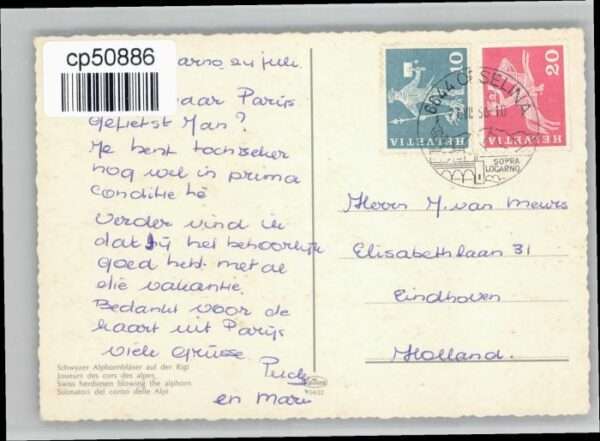 cp50886
arno, en juli.
naar Parijs
gefietst Man?
Je bent toch zeker
nog wel in prima
conditie hè
Verder vind ik
dat jij het behoorlijk
goed hebt met al
die vakantie.
Bedankt voor de
kaart uit Parijs
viele Grüsse
Puck
en Mari
Schwyzer Alphornbläser auf der Rigi
Joueurs des cors des alpes
Swiss herdsmen blowing the alphorn
Suonatori del corno delle Alpi
10
HELVETIA
20
HELVETIA
6644 ORSELINA
SOPRA
LOCARNO
Herrn M. van Meurs
Elisabethlaan 31
Eindhoven
Holland.